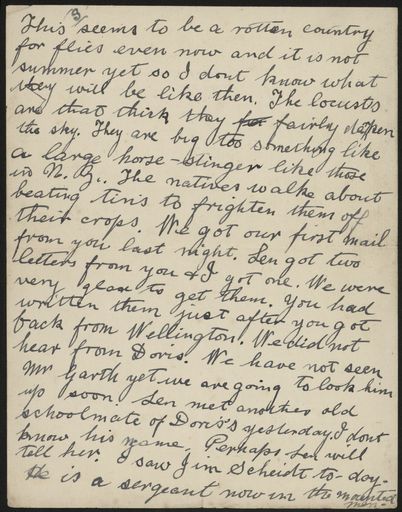 3/
This seems to be a rotten country
for flies even now and it is not
summer yet so I dont know what
they will be like then. The locusts
are that thick they for fairly darken
the sky. They are big too something like
a large horse-stinger like those
in N. Z. The natives walk about
beating tins to frighten them off
their crops. We got our first mail
from you last night, Len got two
letters from you & I got one. We were
very glad to get them. You had
written them just after you got
back from Wellington. We did not
hear from Doris. We have not seen
Mr Garth yet we are going to look him
up soon. Len met another old
schoolmate of Doris's yesterday, I dont
know his name. Perhaps Len will
tell her. I saw Jim Scheidt to-day.
He is a sergeant now in the mounted
men.